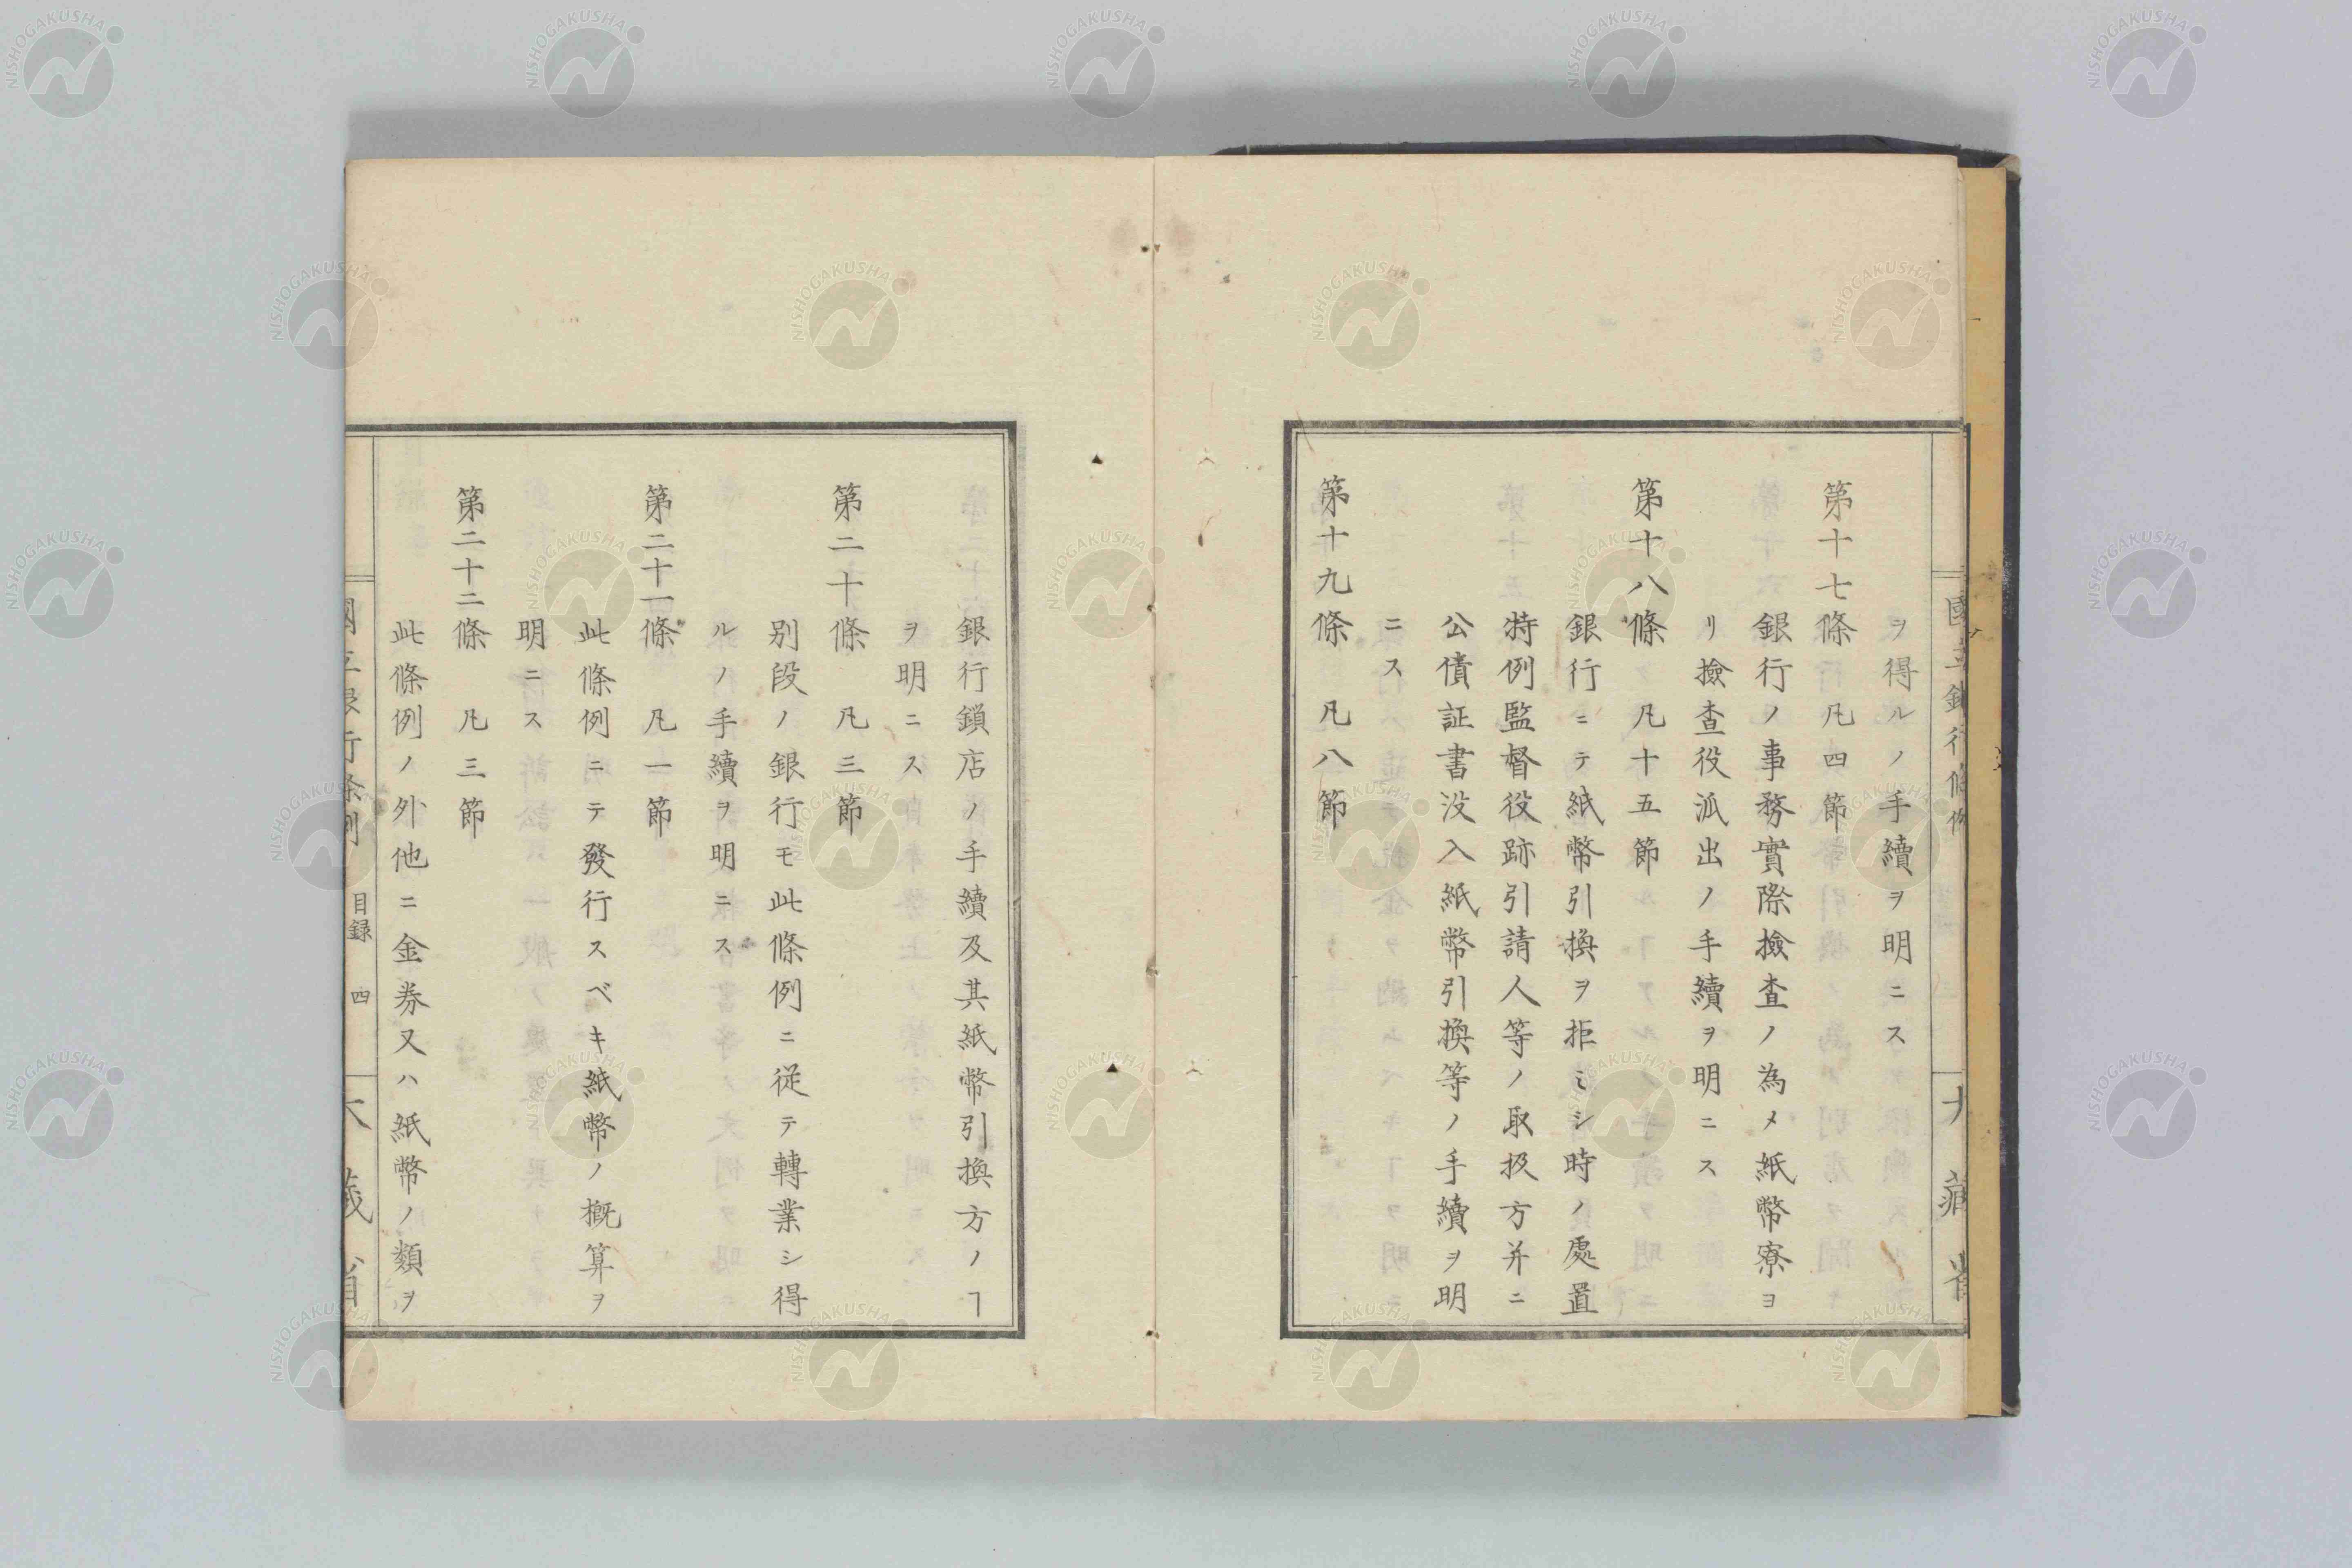 ヲ得ルノ手續ヲ明ニス
第十七條 凡四節
銀行ノ事務實際撿査ノ為メ紙幣寮ヨ
リ撿査役派出ノ手續ヲ明ニス
第十八條 凡十五節
銀行ニテ紙幣引換ヲ拒ミシ時ノ處置
特例監督役跡引請人等ノ取扱方并ニ
公債証書没入紙幣引換等ノ手續ヲ明
ニス
第十九條 凡八節
銀行鎖店ノ手續及其紙幣引換方ノヿ
ヲ明ニス
第二十條 凡三節
別段ノ銀行モ此條例ニ従テ轉業シ得
ルノ手續ヲ明ニス
第二十一條 凡一節
此條例ニテ發行スベキ紙幣ノ概算ヲ
明ニス
第二十二條 凡三節
此條例ノ外他ニ金券又ハ紙幣ノ類ヲ
國立銀行條例 目録 四 大藏省
NISHOGAKUSHA